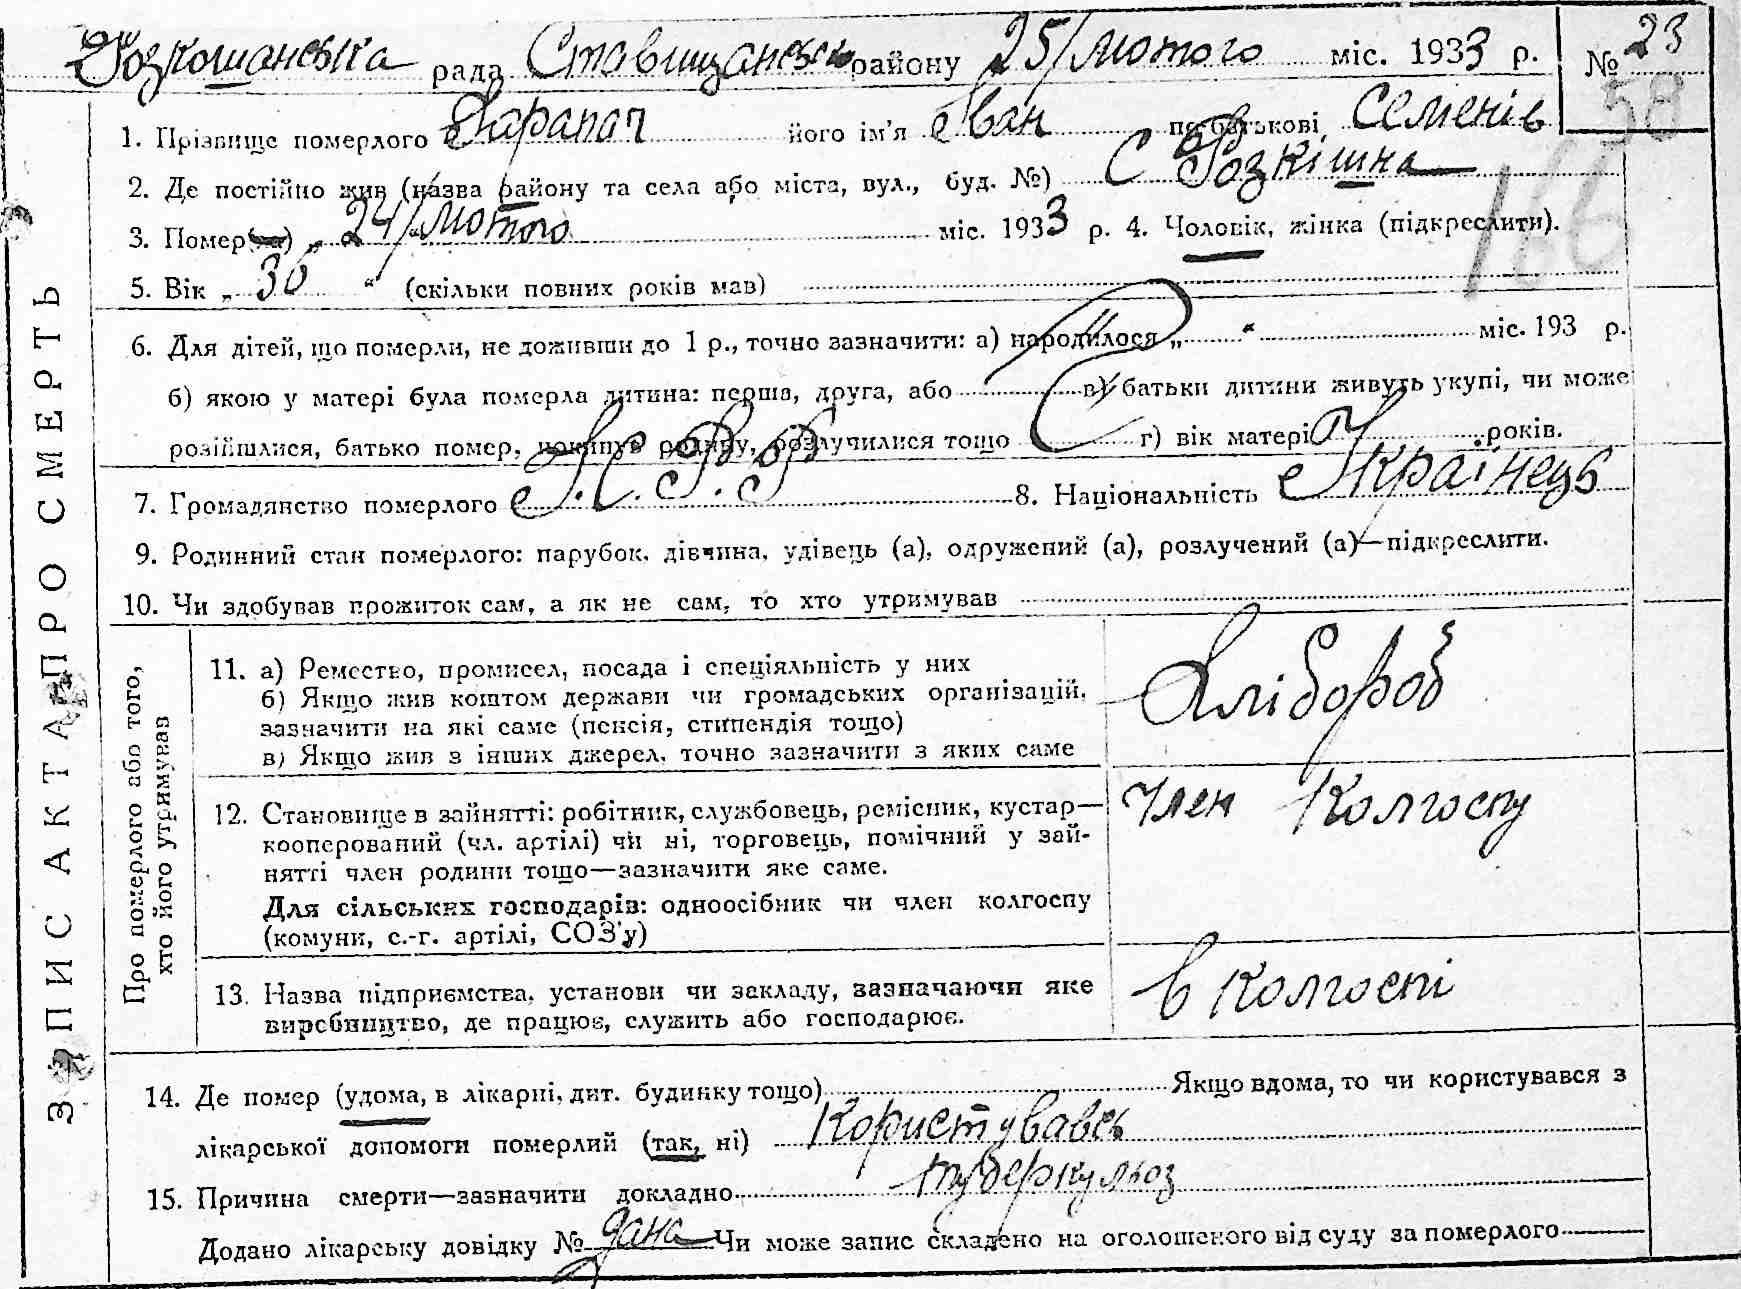 Розкошанська рада Ставищанськ району 25/Лютого міс. 1933 р. № 23
58
1. Прізвище померлого Тарапат його ім'я Іван по батькові Семенів
2. Де постійно жив (назва району та села або міста, вул., буд. №) С Розкішна
166
3. Помер(ла) „ 24/Лютого міс. 1933 р. 4. Чоловік, жінка (підкреслити).
5. Вік „ 36 “ (скільки повних років мав)
6. Для дітей, що померли, не доживши до 1 р., точно зазначити: а) народилося „ “ міс. 193 р.
б) якою у матері була померла дитина: перша, друга, або в) батьки дитини живуть укупі, чи може
розійшлися, батько помер, покинув родину, розлучилися тощо г) вік матері років.
7. Громадянство померлого У.С.Р.Р. 8. Національність Українець
9. Родинний стан померлого: парубок, дівчина, удівець (а), одружений (а), розлучений (а)—підкреслити.
10. Чи здобував прожиток сам, а як не сам, то хто утримував
ЗАПИС АКТА ПРО СМЕРТЬ
Про померлого або того,
хто його утримував
11. а) Ремество, промисел, посада і спеціяльність у них
б) Якщо жив коштом держави чи громадських організацій,
зазначити на які саме (пенсія, стипендія тощо)
в) Якщо жив з інших джерел, точно зазначити з яких саме
Хлібороб
12. Становище в зайнятті: робітник, службовець, ремісник, кустар—
кооперований (чл. артілі) чи ні, торговець, помічний у зай-
нятті член родини тощо—зазначити яке саме.
Для сільських господарів: одноосібник чи член колгоспу
(комуни, с.-г. артілі, СОЗ'у)
Член Колгоспу
13. Назва підприємства, установи чи закладу, зазначаючи яке
виробництво, де працює, служить або господарює.
в Колгоспі
14. Де помер (удома, в лікарні, дит. будинку тощо) Якщо вдома, то чи користувався з
лікарської допомоги померлий (так, ні) Користувавсь
15. Причина смерти—зазначити докладно туберкульоз
Додано лікарську довідку № дана Чи може запис складено на оголошеного від суду за померлого